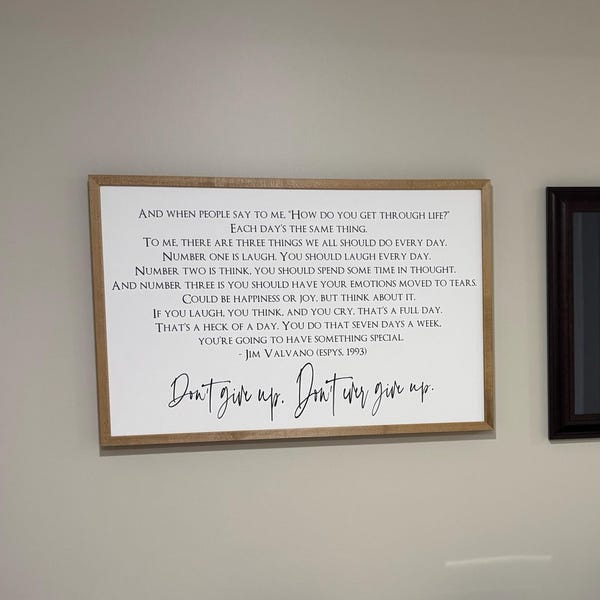 AND WHEN PEOPLE SAY TO ME, "HOW DO YOU GET THROUGH LIFE?"
EACH DAY'S THE SAME THING.
TO ME, THERE ARE THREE THINGS WE ALL SHOULD DO EVERY DAY.
NUMBER ONE IS LAUGH. YOU SHOULD LAUGH EVERY DAY.
NUMBER TWO IS THINK, YOU SHOULD SPEND SOME TIME IN THOUGHT.
AND NUMBER THREE IS YOU SHOULD HAVE YOUR EMOTIONS MOVED TO TEARS.
COULD BE HAPPINESS OR JOY, BUT THINK ABOUT IT.
IF YOU LAUGH, YOU THINK, AND YOU CRY, THAT'S A FULL DAY.
THAT'S A HECK OF A DAY. YOU DO THAT SEVEN DAYS A WEEK,
YOU'RE GOING TO HAVE SOMETHING SPECIAL.
- JIM VALVANO (ESPYS, 1993)
Don't give up. Don't ever give up.